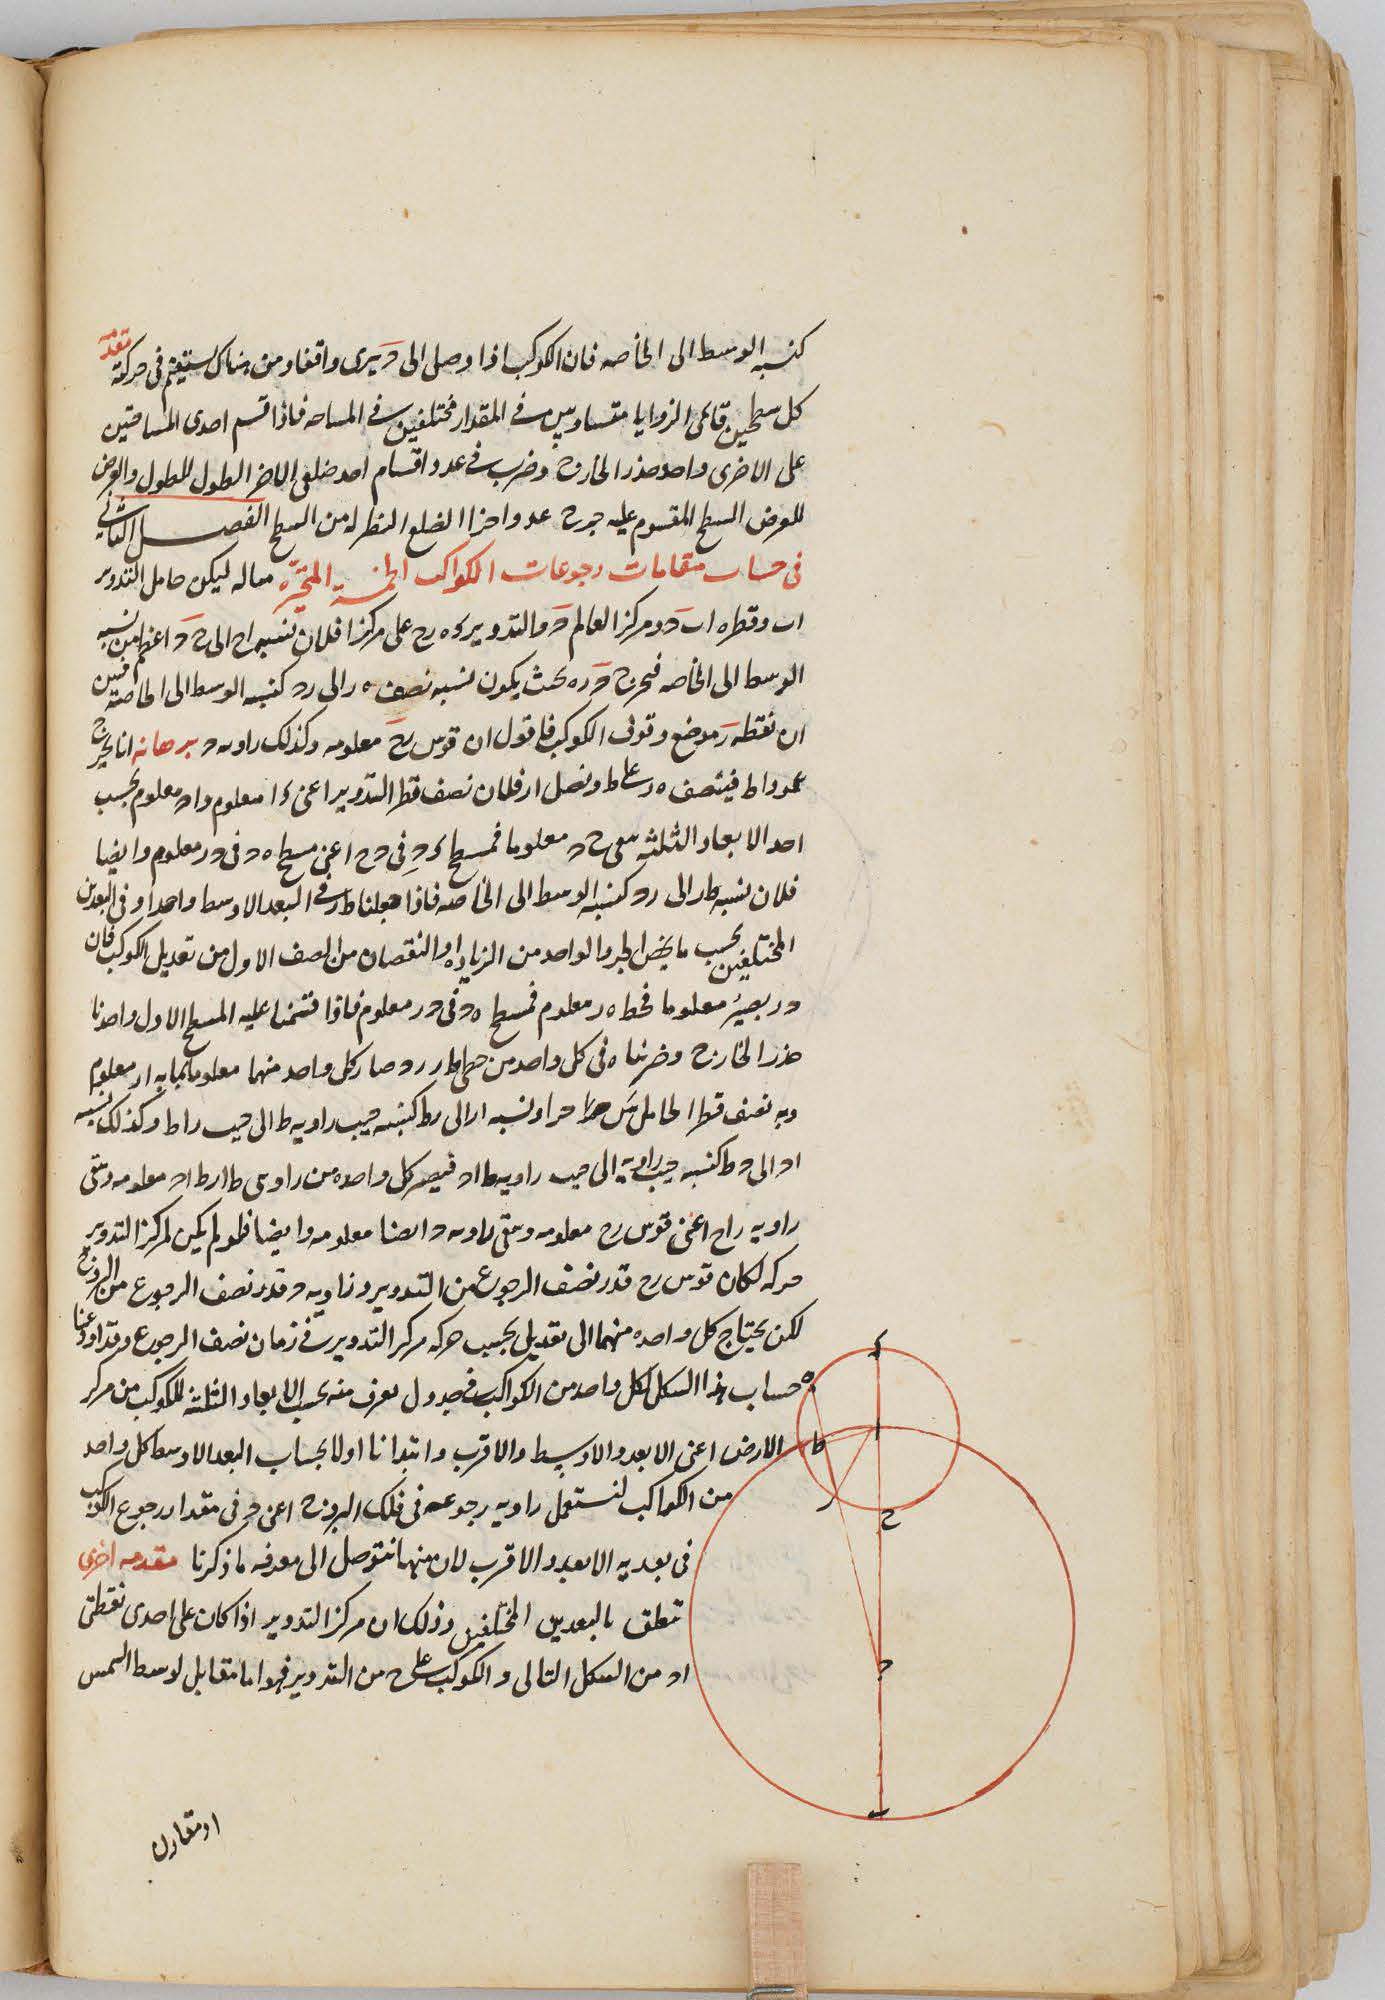 كنسبه الوسط الى الخاصه فان الكوكب اذا وصل الى يرى واقفا ومن هناك يستقيم فى حركته مقدمه
كل سطحين قائمى الزوايا متساويين فى المقدار مختلفين فى المساحه فاذا قسم احدى المساحتين
على الاخرى واخذ جذر الخارج وضرب فى عدد اقسام احد ضلعى الاخر الطول للطول والعرض
للعرض السطح المقسوم عليه خرج عدد اجزا الضلع النظير له من السطح الفصل الثانى
فى حساب مقامات رجوعات الكواكب الخمسة المتحيره مثاله ليكن حامل التدوير
اب وقطره اب ومركز العالم والتدوير ءه رح على مركز ا فلان نسبه اح الى ح د اعظم من نسبه
الوسط الى الخاصه فنخرج د ر ه بحيث يكون نسبه نصف ه ر الى ر د كنسبه الوسط الى الخاصه فبين
ان نقطه ر موضع وقوف الكوكب فاقول ان قوس رح معلومه وكذلك زاويه د برهانه انا نخرج
عمود اط فينصف ه ر على ط ونصل ار فلان نصف قطر التدوير اعنى ءا معلوم و اد معلوم بحسب
احد الابعاد الثلثه بقى ح د معلوما فمسطح ءد فى د ح اعنى مسطح ه د فى د ر معلوم وايضا
فلان نسبه ط ر الى ر د كنسبه الوسط الى الخاصه فاذا جعلنا ط ر فى البعد الاوسط واحدا و فى البعدين
المختلفين بحسب ما يخص الجزو الواحد من الزياده او النقصان من الصف الاول من تعديل الكوكب فان
د ر يصير معلوما فخط ه ر معلوم فمسطح ه د فى د ر معلوم فاذا قسمنا عليه المسطح الاول واخذنا
جذر الخارج وضربناه فى كل واحد من خطى ط ر ر د صار كل واحد منهما معلوما بما به ار معلوم
وبه نصف قطر الحامل س جزا ونسبه ار الى ر ط كنسبه جيب زاويه ط الى جيب ر ا ط وكذلك نسبه
اد الى د ط كنسبه جيب زاويه الى جيب زاويه ط اد فيصير كل واحده من زاويتى ط ا ر ط اد معلومه وبقى
زاويه راح اعنى قوس رح معلومه وبقى زاويه د ايضا معلومه وايضا فلو لم يكن لمركز التدوير
حركه لكان قوس رح قدر نصف الرجوع من التدوير وزاويه د قدر نصف الرجوع من البروج
لكن يحتاج كل واحده منهما الى تعديل بحسب حركه مركز التدوير فى زمان نصف الرجوع وقد اودعنا
حساب هذا الشكل لكل واحد من الكواكب فى جدول يعرف منه بحسب الابعاد الثلثه للكوكب من مركز
الارض اعنى الابعد والاوسط والاقرب وابتدانا اولا بحساب البعد الاوسط لكل واحد
من الكواكب لنستعمل زاويه رجوعه فى فلك البروج اعنى د فى مقدار رجوع الكوكب
فى بعديه الابعد والاقرب لان منهما نتوصل الى معرفه ما ذكرنا مقدمه اخرى
تتعلق بالبعدين المختلفين وذلك ان مركز التدوير اذا كان على احدى نقطتى
اد من الشكل التالى والكوكب على ح من التدوير فهو اما مقابل لوسط الشمس
او مقارن
ء
ه
ا
ط
ر
ح
د
ب